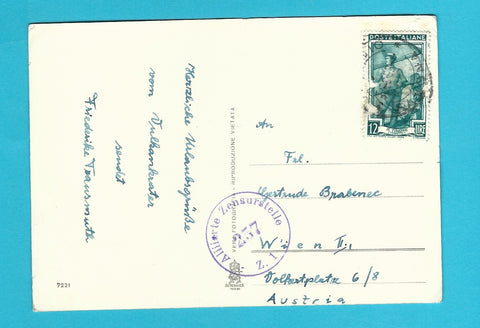 Herzliche Urlaubsgrüße
vom Vulkankrater
sendet
Friederike
VERA FOTOGRAFIA - RIPRODUZIONE VIETATA
7221
POSTE ITALIANE
12 LIRE
An
Frl.
Gertrude Brabenec
Wien II,
Volkertplatz 6/8
Austria
Alliierte Zensurstelle
257
Z. 1